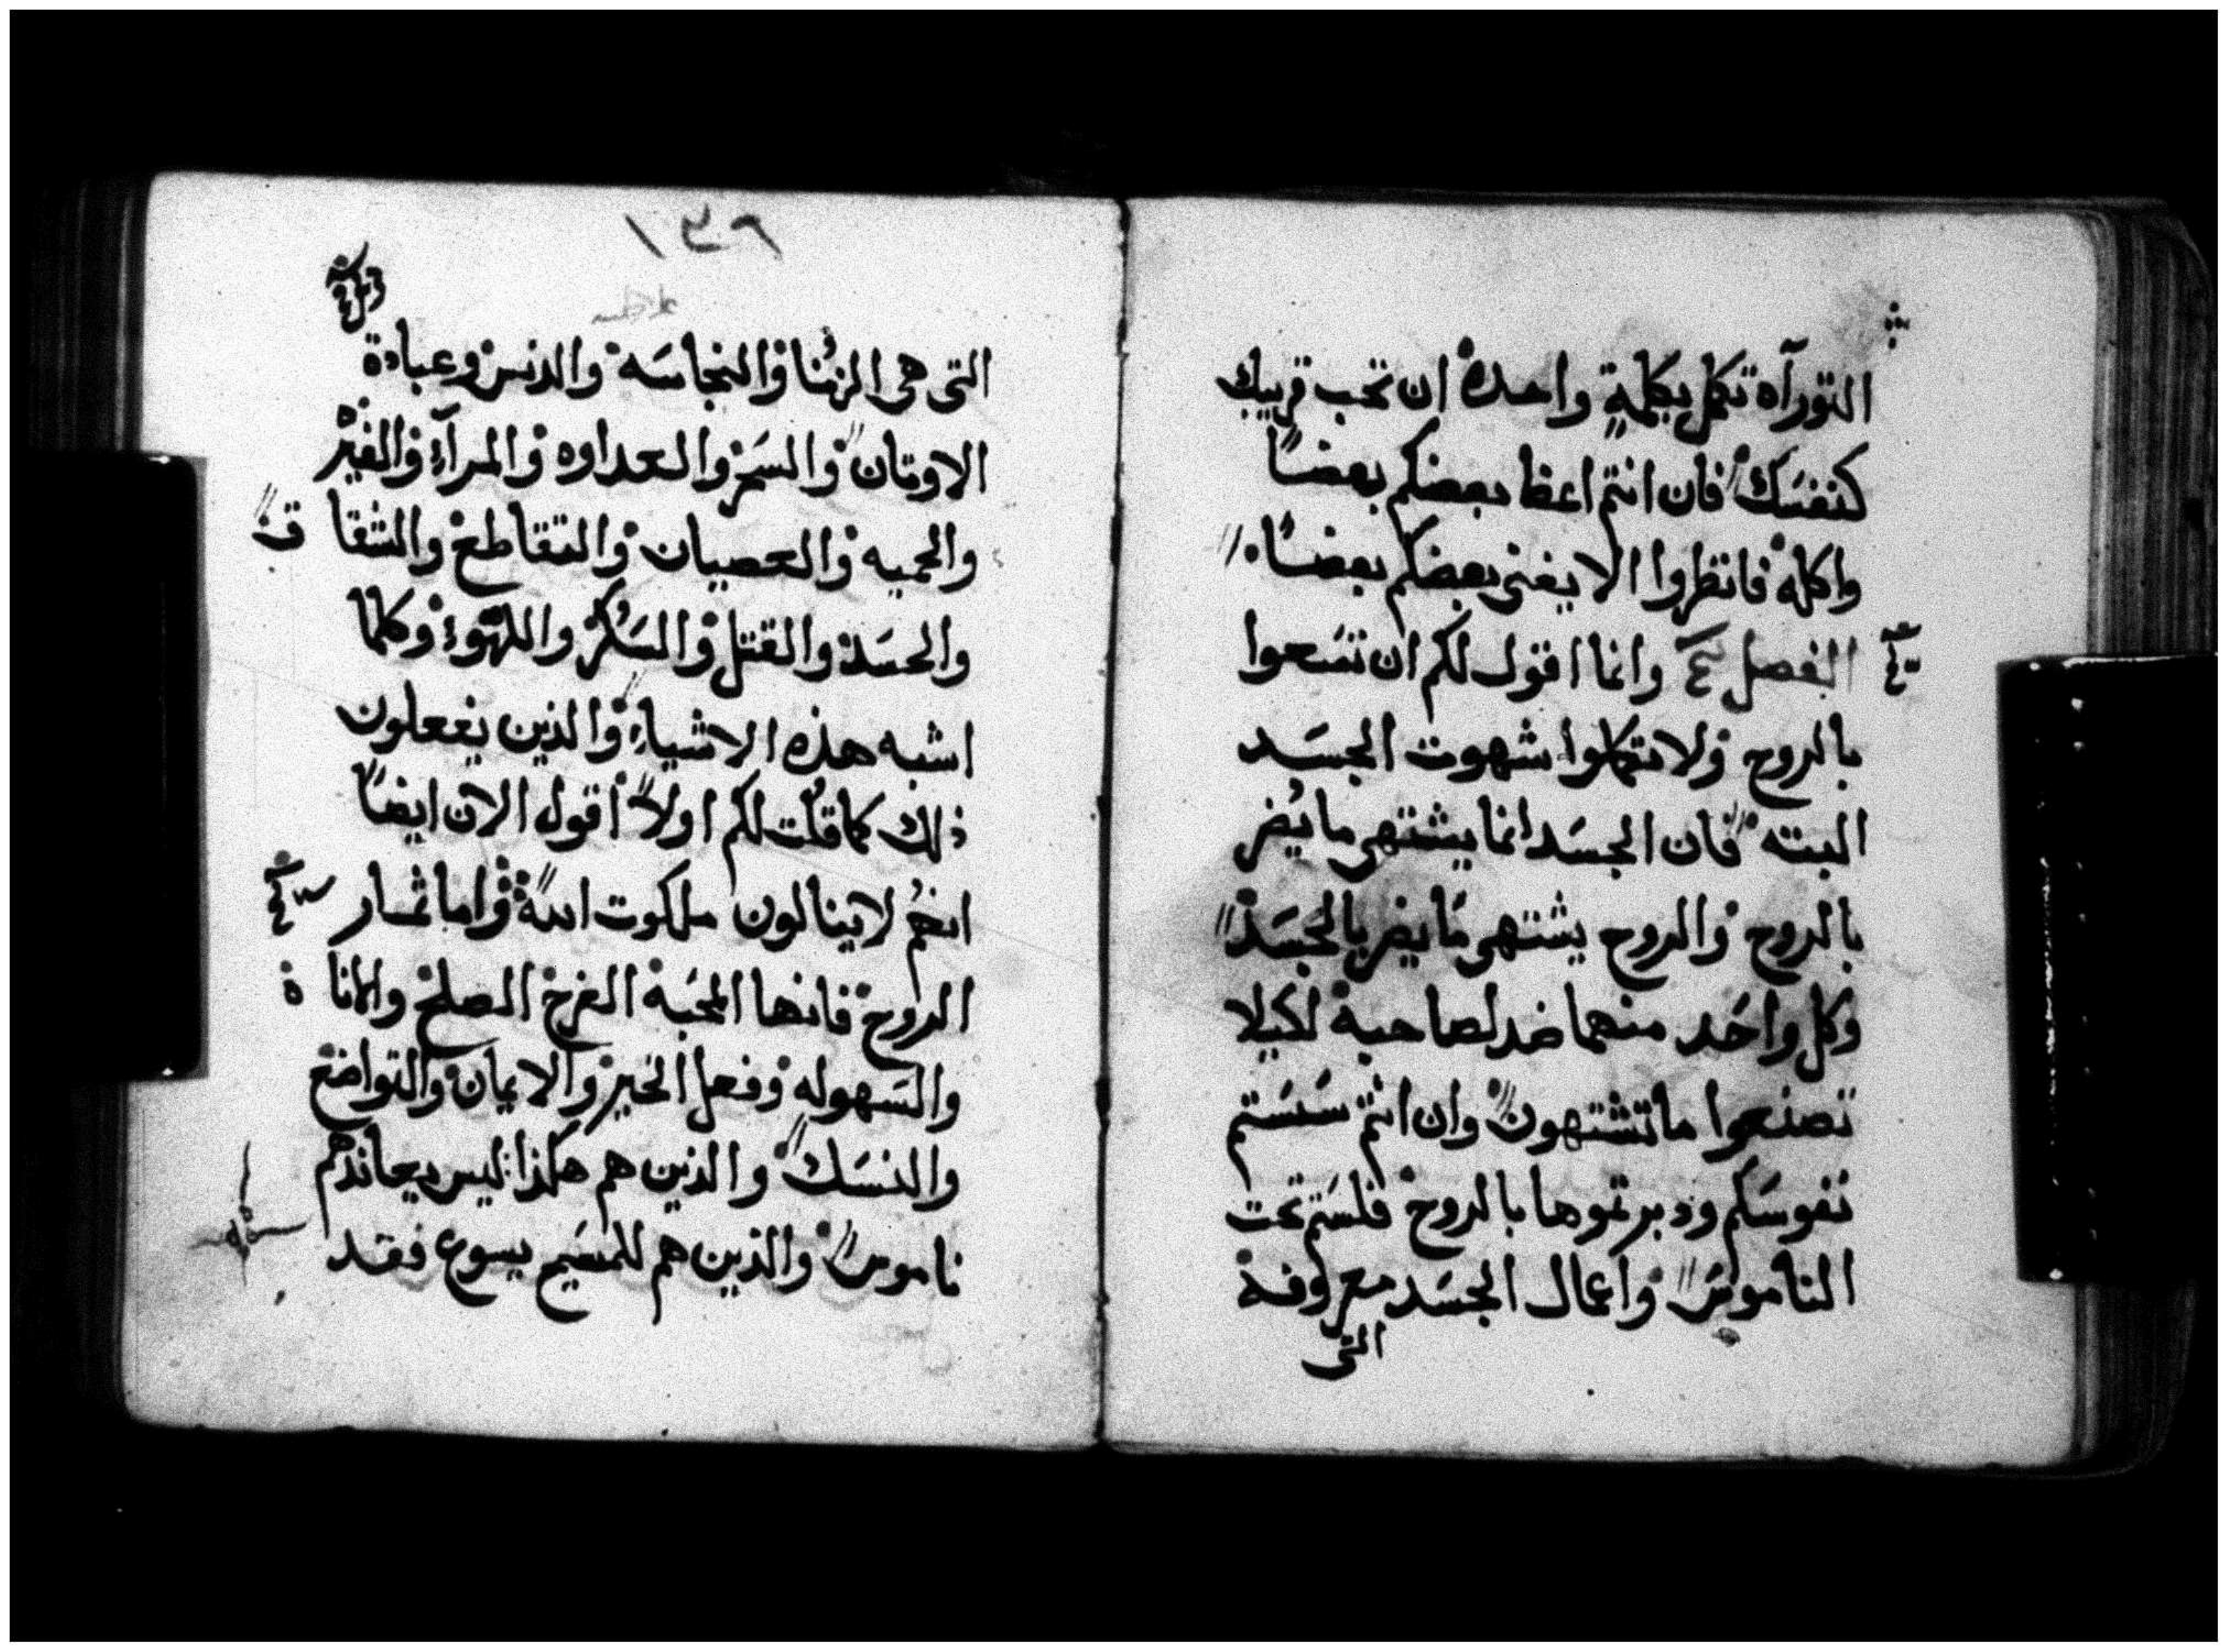 التورآه تكمل بكلمةٍ واحدة ان تحب قريبك
كنفسَك فان انتم اعظا بعضكم بعضًا
واكله فانظروا الا يفنى بعضكم بعضًا
الفصل وانما اقول لكم ان تسَعوا
بالروح ولا تتكملوا شهوت الجسَد
البته فان الجسَد انما يشتهى ما يُضر
بالروح والروح يشتهى مَا يضر بالجسَد
وكل واحَد منهما ضد لصاحبه لكيلا
تصنعوا ما تشتهون وان انتم سَسَتم
نفوسَكم ودبرتموها بالروح فلسَتم تحت
الناموسَ واعمال الجسَد معروفة
التى
التى هى الزنُا والنجاسَه والدنس وعبادة
الاوتان والسَحر والعداوه والمرآء والغيْر
والحميه والعصيان والتقاطع والشقاق
والحسَد والقتل والسَكُر واللهو وكلما
اشبه هذه الاشياء والذين يفعلون
ذلك كما قلُت لكم اولاً أقول الان ايضًا
انهمُ لا ينالون ملكوت الله واما ثمار
الروح فانها المحَبه الفرح الصلح والاناة
والسَهوله وفعل الخير والايمان والتواضع
والنسَك والذين هم هكذا ليس يعاندهم
ناموس والذين هم للمسَيح يسوع فقد